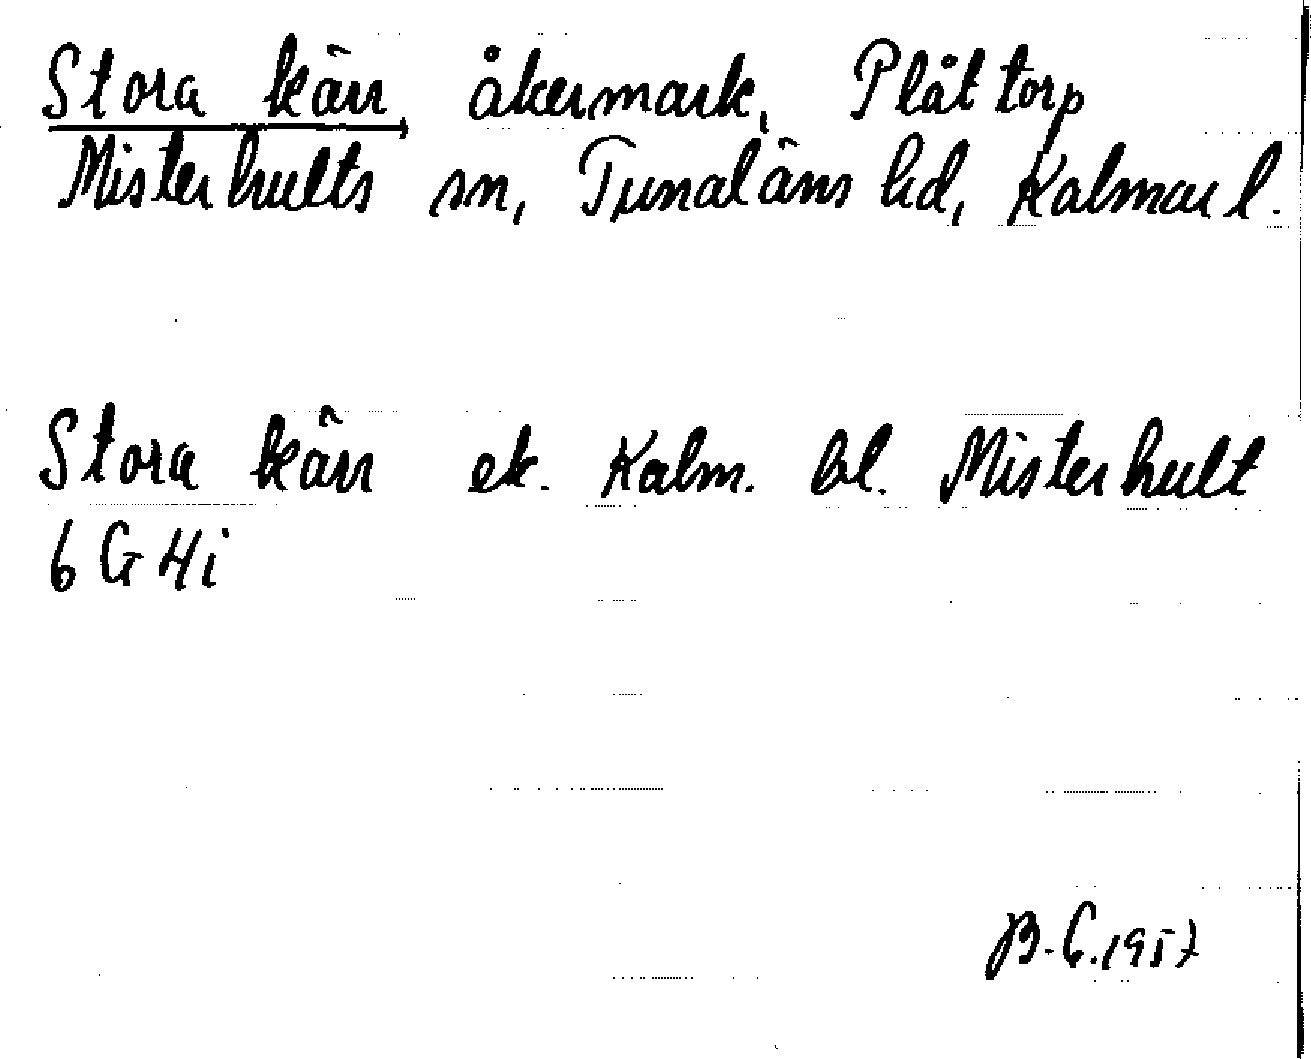 Stora kärr, åkermark, Plåttorp
Misterhults sn, Tunaläns hd, Kalmar l.
Stora kärr ek. Kalm. bl. Misterhult
6 G 4i
B. C. 1957